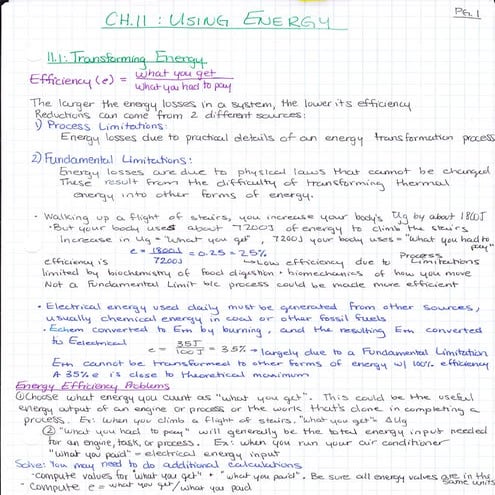 CH.11: USING ENERGY
PG. 1
11.1: Transforming Energy
Efficiency (e) = what you get / what you had to pay
The larger the energy losses in a system, the lower its efficiency
Reductions can come from 2 different sources:
1) Process Limitations:
Energy losses due to practical details of an energy transformation process
2) Fundamental Limitations:
Energy losses are due to physical laws that cannot be changed
These result from the difficulty of transforming thermal
energy into other forms of energy.
· Walking up a flight of stairs, you increase your body's Ug by about 1800J
· But your body uses about 7200J of energy to climb the stairs
Increase in Ug = "what you get" 7200J your body uses = "what you had to pay"
efficiency is e = 1800J / 7200J = 0.25 = 25% → Low efficiency due to Process Limitations
limited by biochemistry of food digestion + biomechanics of how you move
Not a Fundamental Limit b/c process could be made more efficient
· Electrical energy used daily must be generated from other sources,
usually chemical energy in coal or other fossil fuels
· Echem converted to Eth by burning, and the resulting Eth converted
to Eelectrical e = 35J / 100J = 35% → largely due to a Fundamental Limitation
Eth cannot be transformed to other forms of energy w/ 100% efficiency
A 35% e is close to theoretical maximum
Energy Efficiency Problems
① Choose what energy you count as "what you get". This could be the useful
energy output of an engine or process or the work that's done in completing a
process. Ex: when you climb a flight of stairs, "what you get" = ΔUg
② "What you had to pay" will generally be the total energy input needed
for an engine, task, or process. Ex: when you run your air conditioner
"what you paid" = electrical energy input
Solve: You may need to do additional calculations
· compute values for "what you get" + "what you paid". Be sure all energy values are in the same units
· Compute e = what you get / what you paid